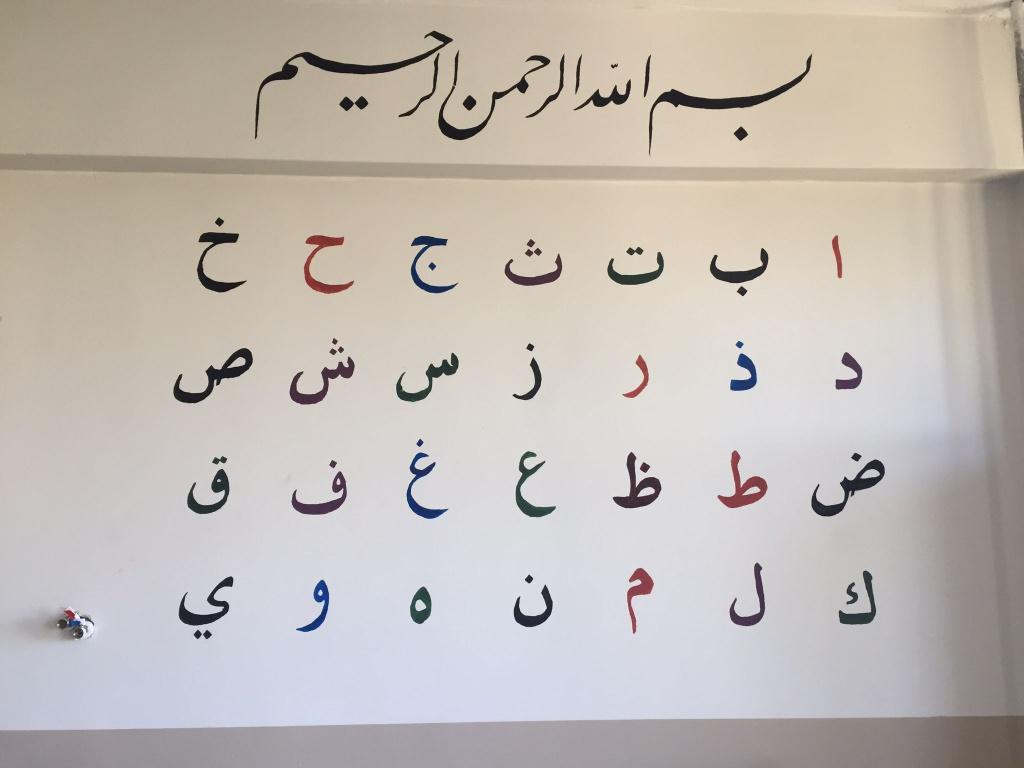 بسم الله الرحمن الرحيم
ا ب ت ث ج ح خ
د ذ ر ز س ش ص
ض ط ظ ع غ ف ق
ك ل م ن ه و ي